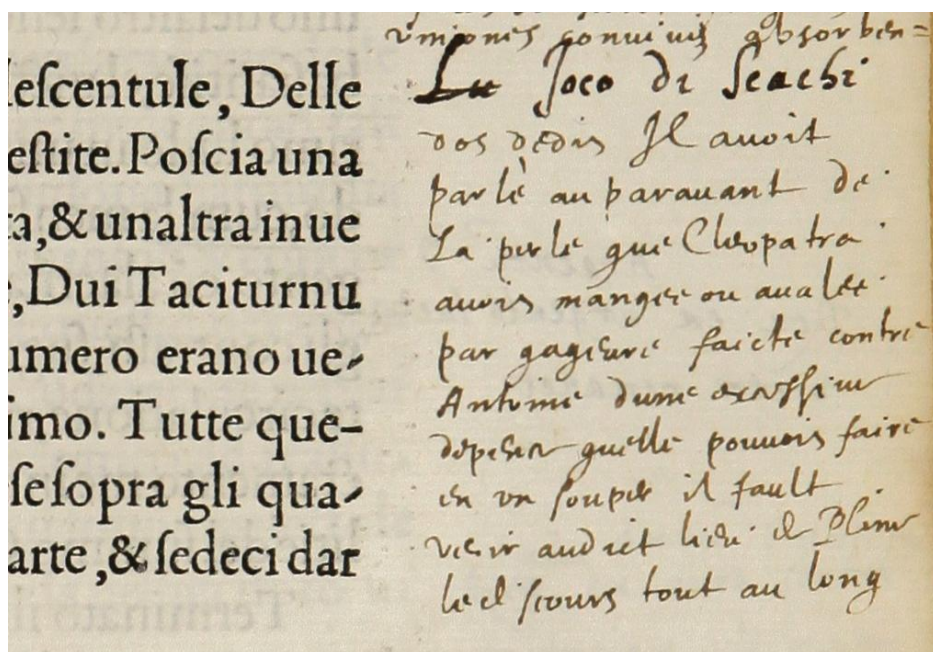 lescentule, Delle
estite. Poscia una
ta, & unaltra inue
, Dui Taciturnu
umero erano ue-
imo. Tutte que-
se sopra gli qua-
arte, & sedeci dar
vniones conuiuis absorben=
Lu Joco di Scachi
dos dedis Il auoit
parlè au parauant de
La perle que Cleopatra
auois mangee ou aualee
par gageure faicte contre
Antoine dune excessiue
depense quelle pouuois faire
en vn souper il fault
veoir audict lieu de Pline
le discours tout au long